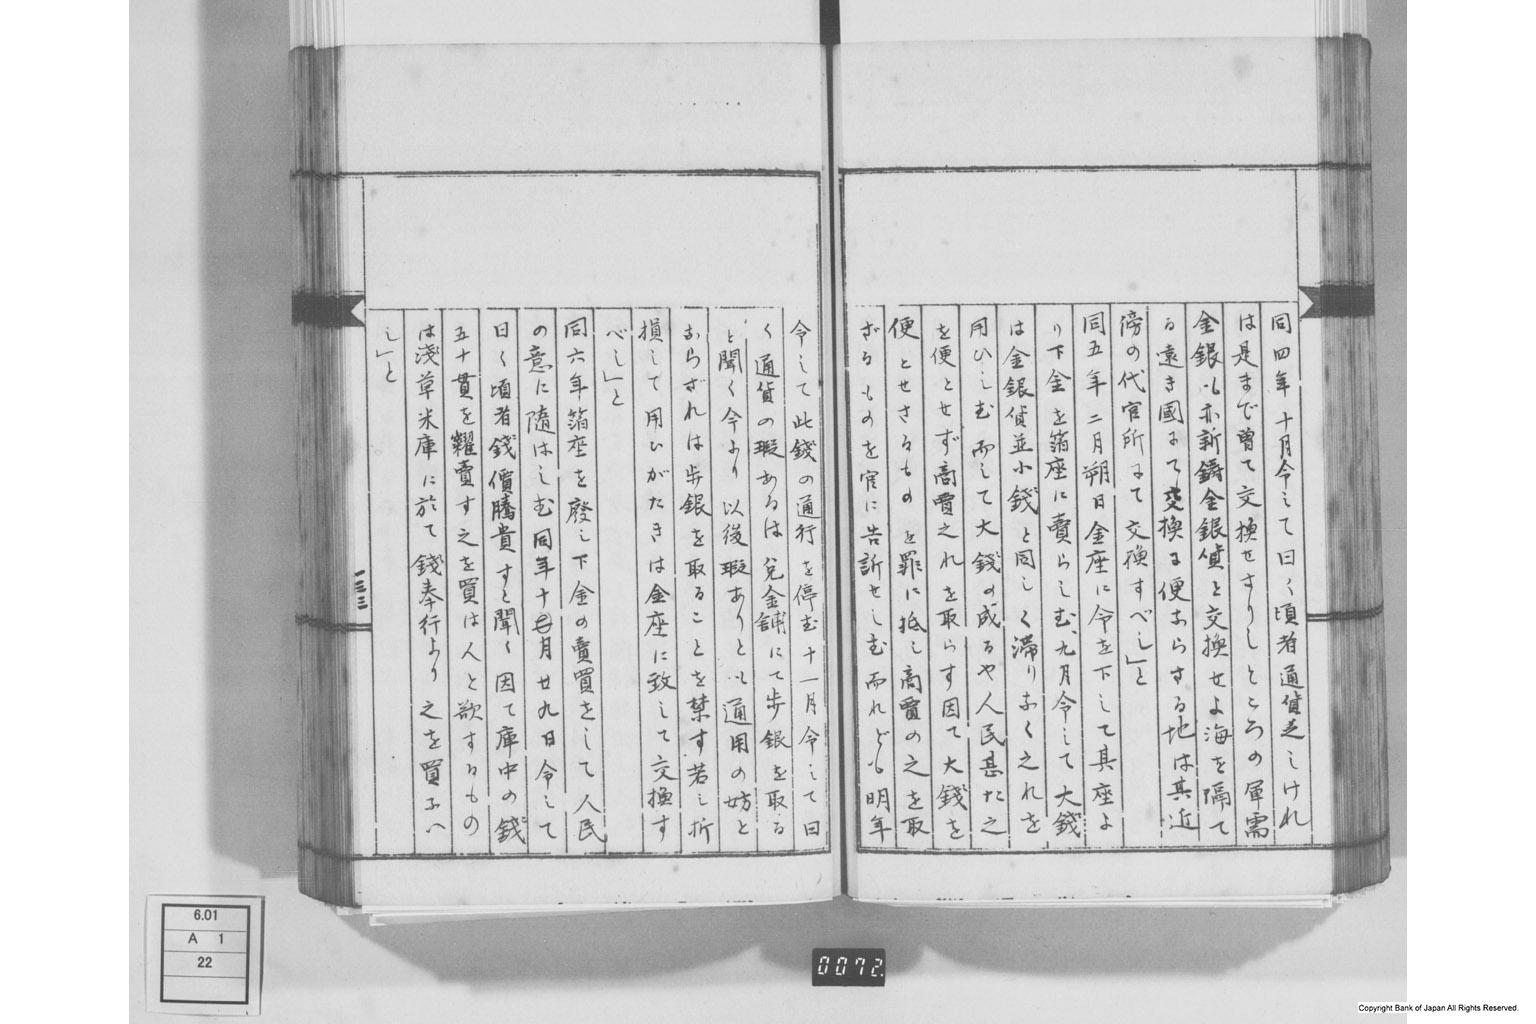 同四年十月令して曰く頃者通貨乏しけれ
は是まで曽て交換せさりしところの軍需
金銀も亦新鋳金銀貨と交換せよ海を隔て
る遠き國にて交換に便ならさる地は其近
傍の代官所にて交換すべし」と
同五年二月朔日金座に令を下して其座よ
り下金を箔座に賣らしむ九月令して大錢
は金銀貨並小錢と同しく滞りなく之れを
用ひしむ而して大錢の成るや人民甚た之
を便とせず商賈之れを取らす因て大錢を
便とせさるものを罪に抵し商賈の之を取
ざるものを官に告訴せしむ而れども明年
令して此錢の通行を停む十一月令して曰
く通貨の瑕あるは兌金舗にて歩銀を取る
と聞く今より以後瑕ありとも通用の妨と
ならざれは歩銀を取ることを禁す若し折
損して用ひがたきは金座に致して交換す
べし」と
同六年箔座を廢し下金の賣買をして人民
の意に隨はしむ同年十月廿九日令して
曰く頃者錢價騰貴すと聞く因て庫中の錢
五十貫を糶賣す之を買は人と欲するもの
は淺草米庫に於て錢奉行より之を買ふへ
し」と
一三三
6.01
A 1
22
0072
Copyright Bank of Japan All Rights Reserved.